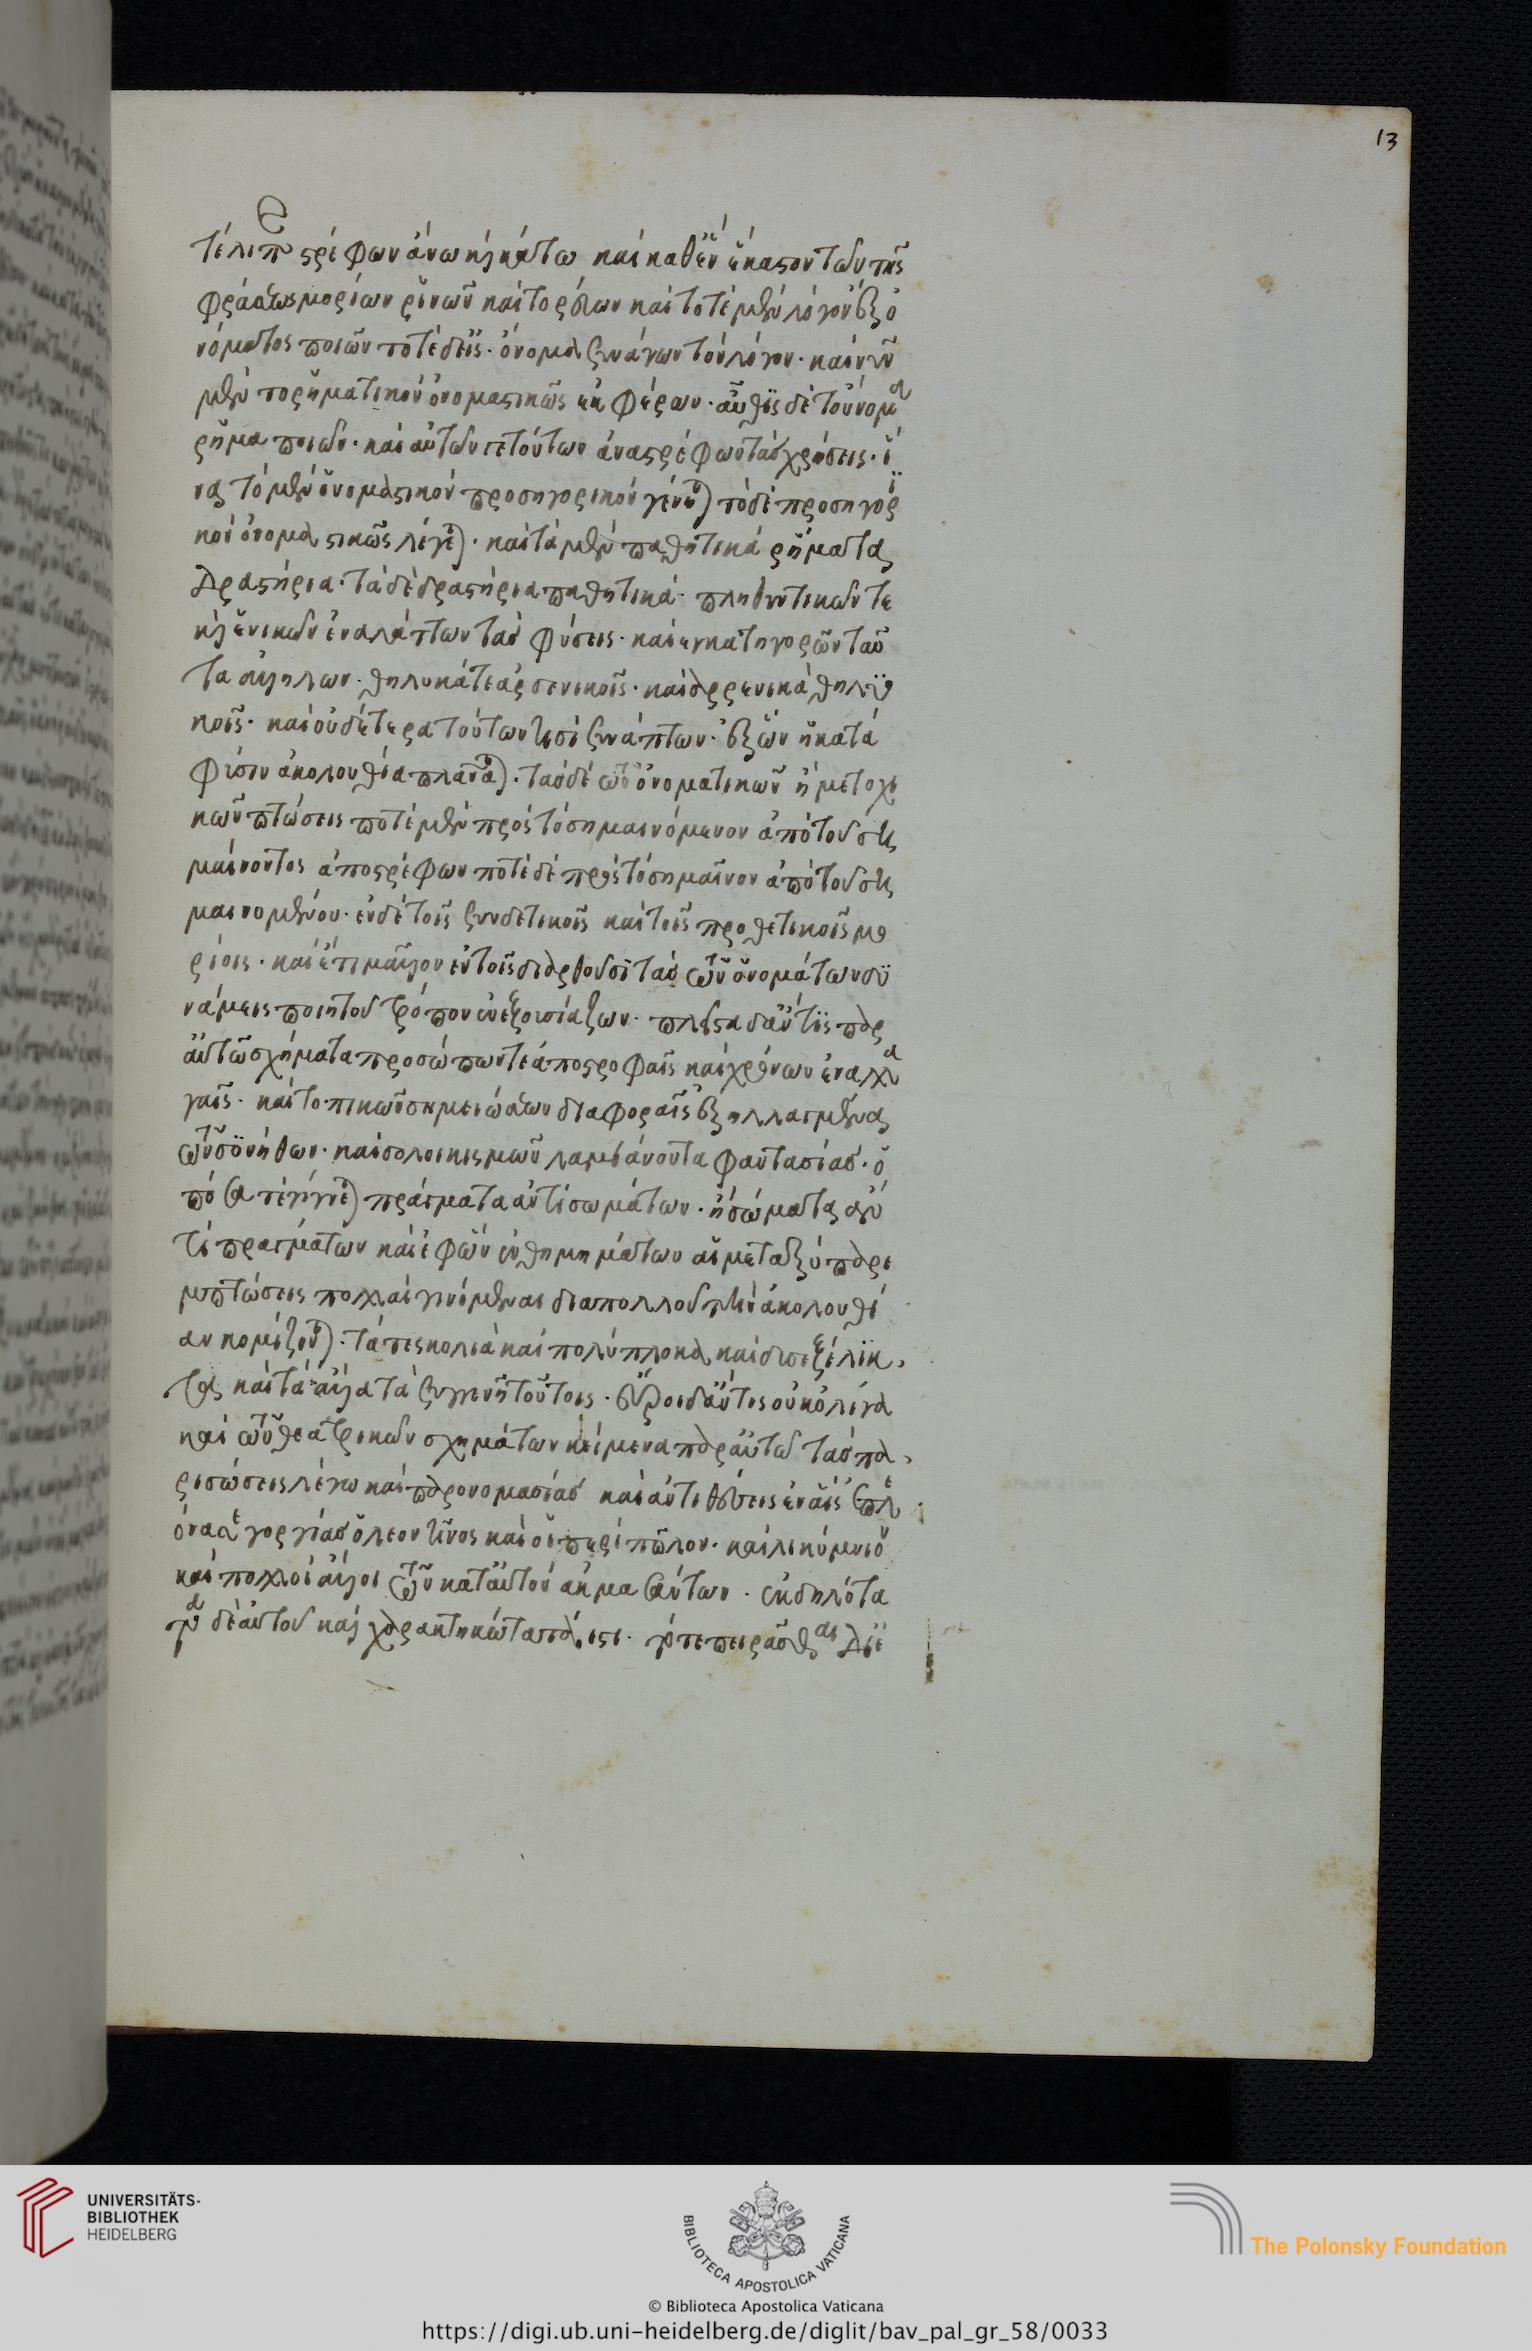 13
τέλει στρέφων ἄνω καὶ κάτω καὶ καθ' ἓν ἕκαστον τῶν τῆς
φράσεως μορίων
νόματος ποιῶν ποτὲ δὲ εἰς ὄνομα συνάγων τὸν λόγον. καὶ νῦν
μὲν τὸ ῥηματικὸν ὀνομαστικῶς ἐκφέρων. αὖθις δὲ τοὔνομα
ῥῆμα ποιῶν. καὶ αὐτῶν γε τούτων ἀναστρέφων τὰς χρήσεις. ἵ
να τὸ μὲν ὀνομαστικὸν προσηγορικὸν γένηται τὸ δὲ προσηγορι
κὸν ὀνομαστικῶς λέγηται. καὶ τὰ μὲν παθητικὰ ῥήματα
δραστήρια. τὰ δὲ δραστήρια παθητικά. πληθυντικῶν τε
καὶ ἑνικῶν ἐναλάττων τὰς φύσεις. καὶ κατηγορῶν ταῦ
τα ἀλλήλων. θηλυκά τε ἀρσενικοῖς. καὶ ἀρρενικὰ θηλυ
κοῖς. καὶ οὐδέτερα τούτων τισὶ συνάπτων. ἐξ ὧν ἡ κατὰ
φύσιν ἀκολουθία πλανᾶται. τὰς δὲ τῶν ὀνοματικῶν ἢ μετοχι
κῶν πτώσεις ποτὲ μὲν πρὸς τὸ σημαινόμενον ἀπὸ τοῦ ση
μαίνοντος ἀποστρέφων ποτὲ δὲ πρὸς τὸ σημαῖνον ἀπὸ τοῦ ση
μαινομένου. ἐν δὲ τοῖς συνδετικοῖς καὶ τοῖς προθετικοῖς μο
ρίοις. καὶ ἔτι μᾶλλον ἐν τοῖς διαρθοῦσι τὰς τῶν ὀνομάτων δυ
νάμεις ποιητοῦ τρόπον ἐνεξουσιάζων. πλεῖστα δ' ἄν τις παρ'
αὐτῷ σχήματα προσώπων τε ἀποστροφαῖς καὶ χρόνων ἐναλλα
γαῖς. καὶ τοπικῶν σημειώσεων διαφοραῖς ἐξηλλαγμένα
τῶν συνήθων. καὶ σολοικισμῶν λαμβάνοντα φαντασίας. ὁ
πόσα τε γίγνεται πράγματα ἀντὶ σωμάτων. ἢ σώματα ἀν
τὶ πραγμάτων καὶ ἐφ' ὧν ἐνθημημάτων αἱ μεταξὺ παρε
μπτώσεις πολλαὶ γινόμεναι διὰ πολλοῦ τὴν ἀκολουθί
αν κομίζονται. τά τε σκολιὰ καὶ πολύπλοκα καὶ δυσεξέλικ
τα καὶ τὰ ἄλλα τὰ συγγενῆ τούτοις. εὕροι δ' ἄν τις οὐκ ὀλίγα
καὶ τῶν θεατρικῶν σχημάτων κείμενα παρ' αὐτῷ τὰς πα
ρισώσεις λέγω καὶ παρονομασίας καὶ ἀντιθέσεις ἐν αἷς ἐπλε
όνασε γοργίας ὁ λεοντῖνος καὶ οἱ περὶ πῶλον. καὶ λικύμνιον
καὶ πολλοὶ ἄλλοι τῶν κατ' αὐτὸν ἀκμασάντων. ἐκδηλότα
τα δὲ αὐτοῦ καὶ χαρακτηκώτατά ἐστι. τό τε πειρᾶσθαι δι'
UNIVERSITÄTS-
BIBLIOTHEK
HEIDELBERG
BIBLIOTECA APOSTOLICA VATICANA
The Polonsky Foundation
© Biblioteca Apostolica Vaticana
https://digi.ub.uni-heidelberg.de/diglit/bav_pal_gr_58/0033